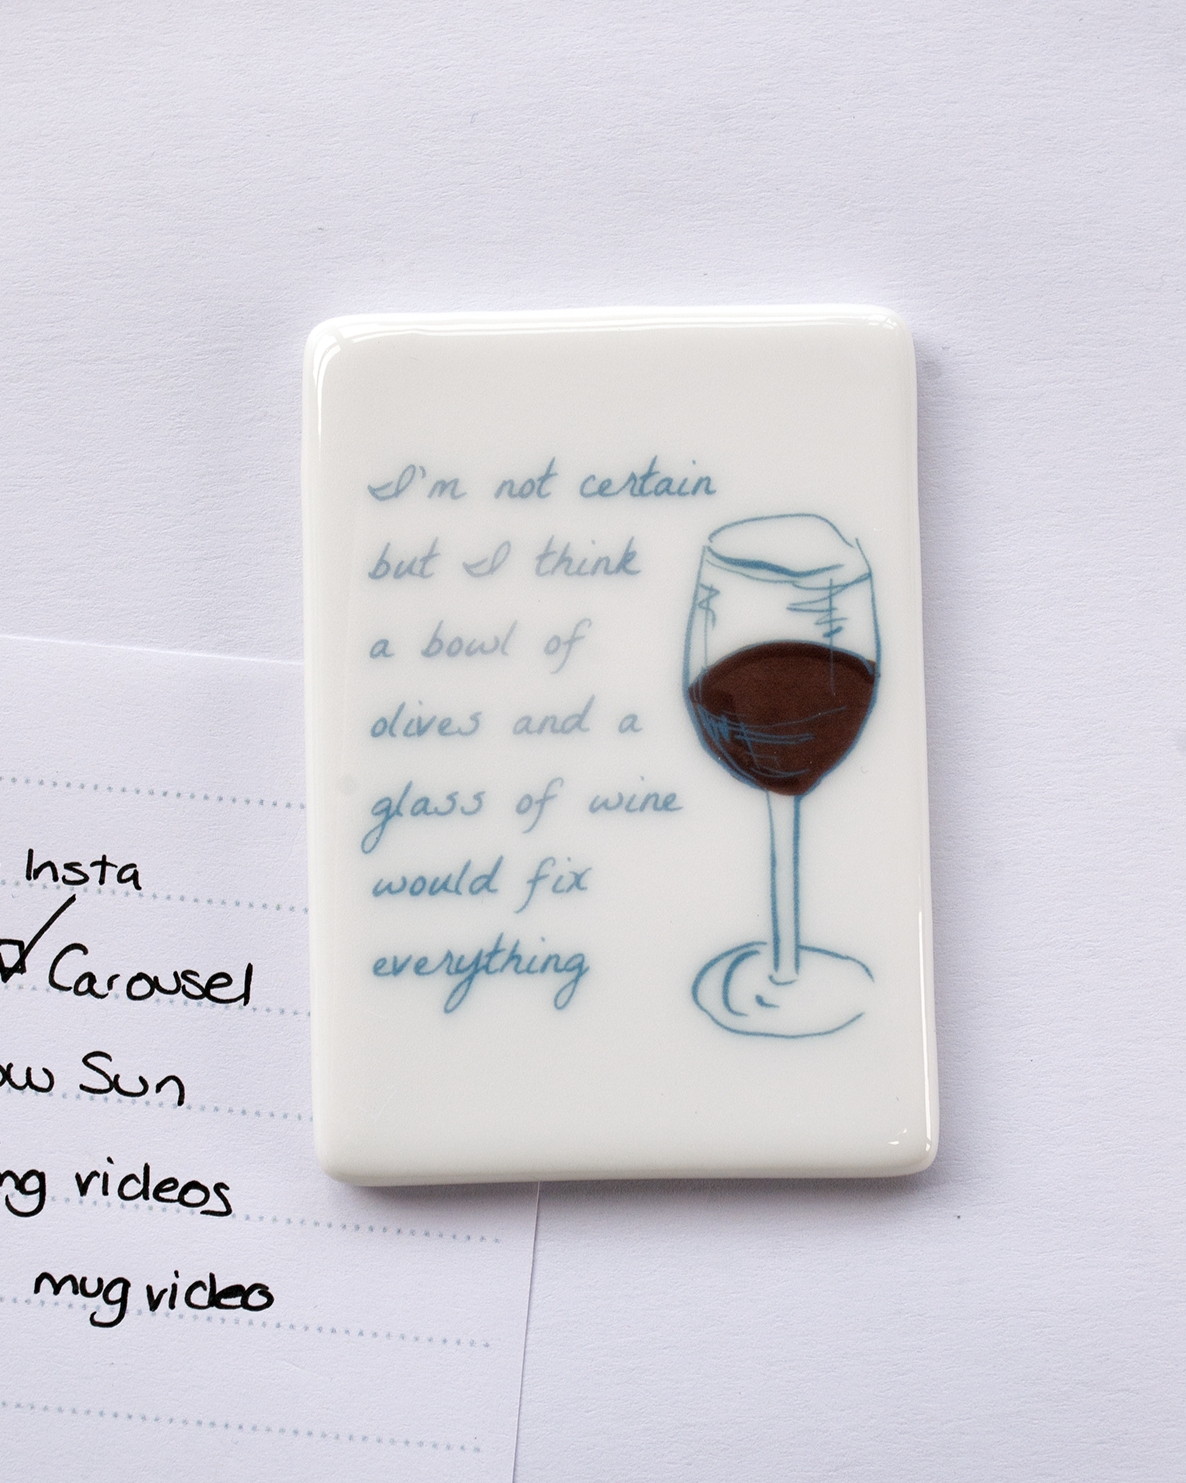 I'm not certain
but I think
a bowl of
olives and a
glass of wine
would fix
everything
Insta
Carousel
Sun
videos
mug video